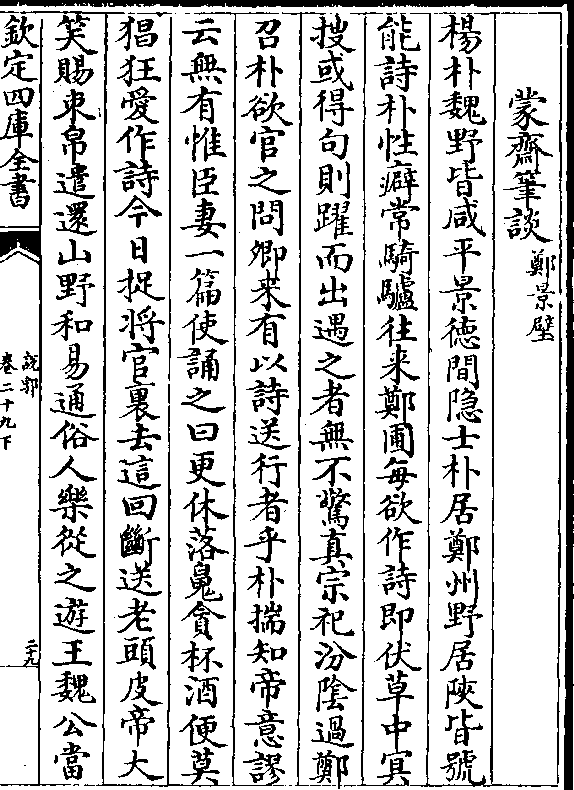 蒙齋筆談 鄭景璧
楊朴魏野皆咸平景德間隐士朴居鄭州野居陜皆號
能詩朴性癖常騎驢往来鄭圃每欲作詩即伏草中冥
搜或得句則躍而出遇之者無不驚真宗祀汾陰過鄭
召朴欲官之問卿来有以詩送行者乎朴揣知帝意謬
云無有惟臣妻一篇使誦之曰更休落魄貪杯酒便莫
猖狂愛作詩今日捉將官裏去這回斷送老頭皮帝大
笑賜束帛遣還山野和易通俗人樂從之遊王魏公當
欽定四庫全書
說郛
卷二十九下
二九